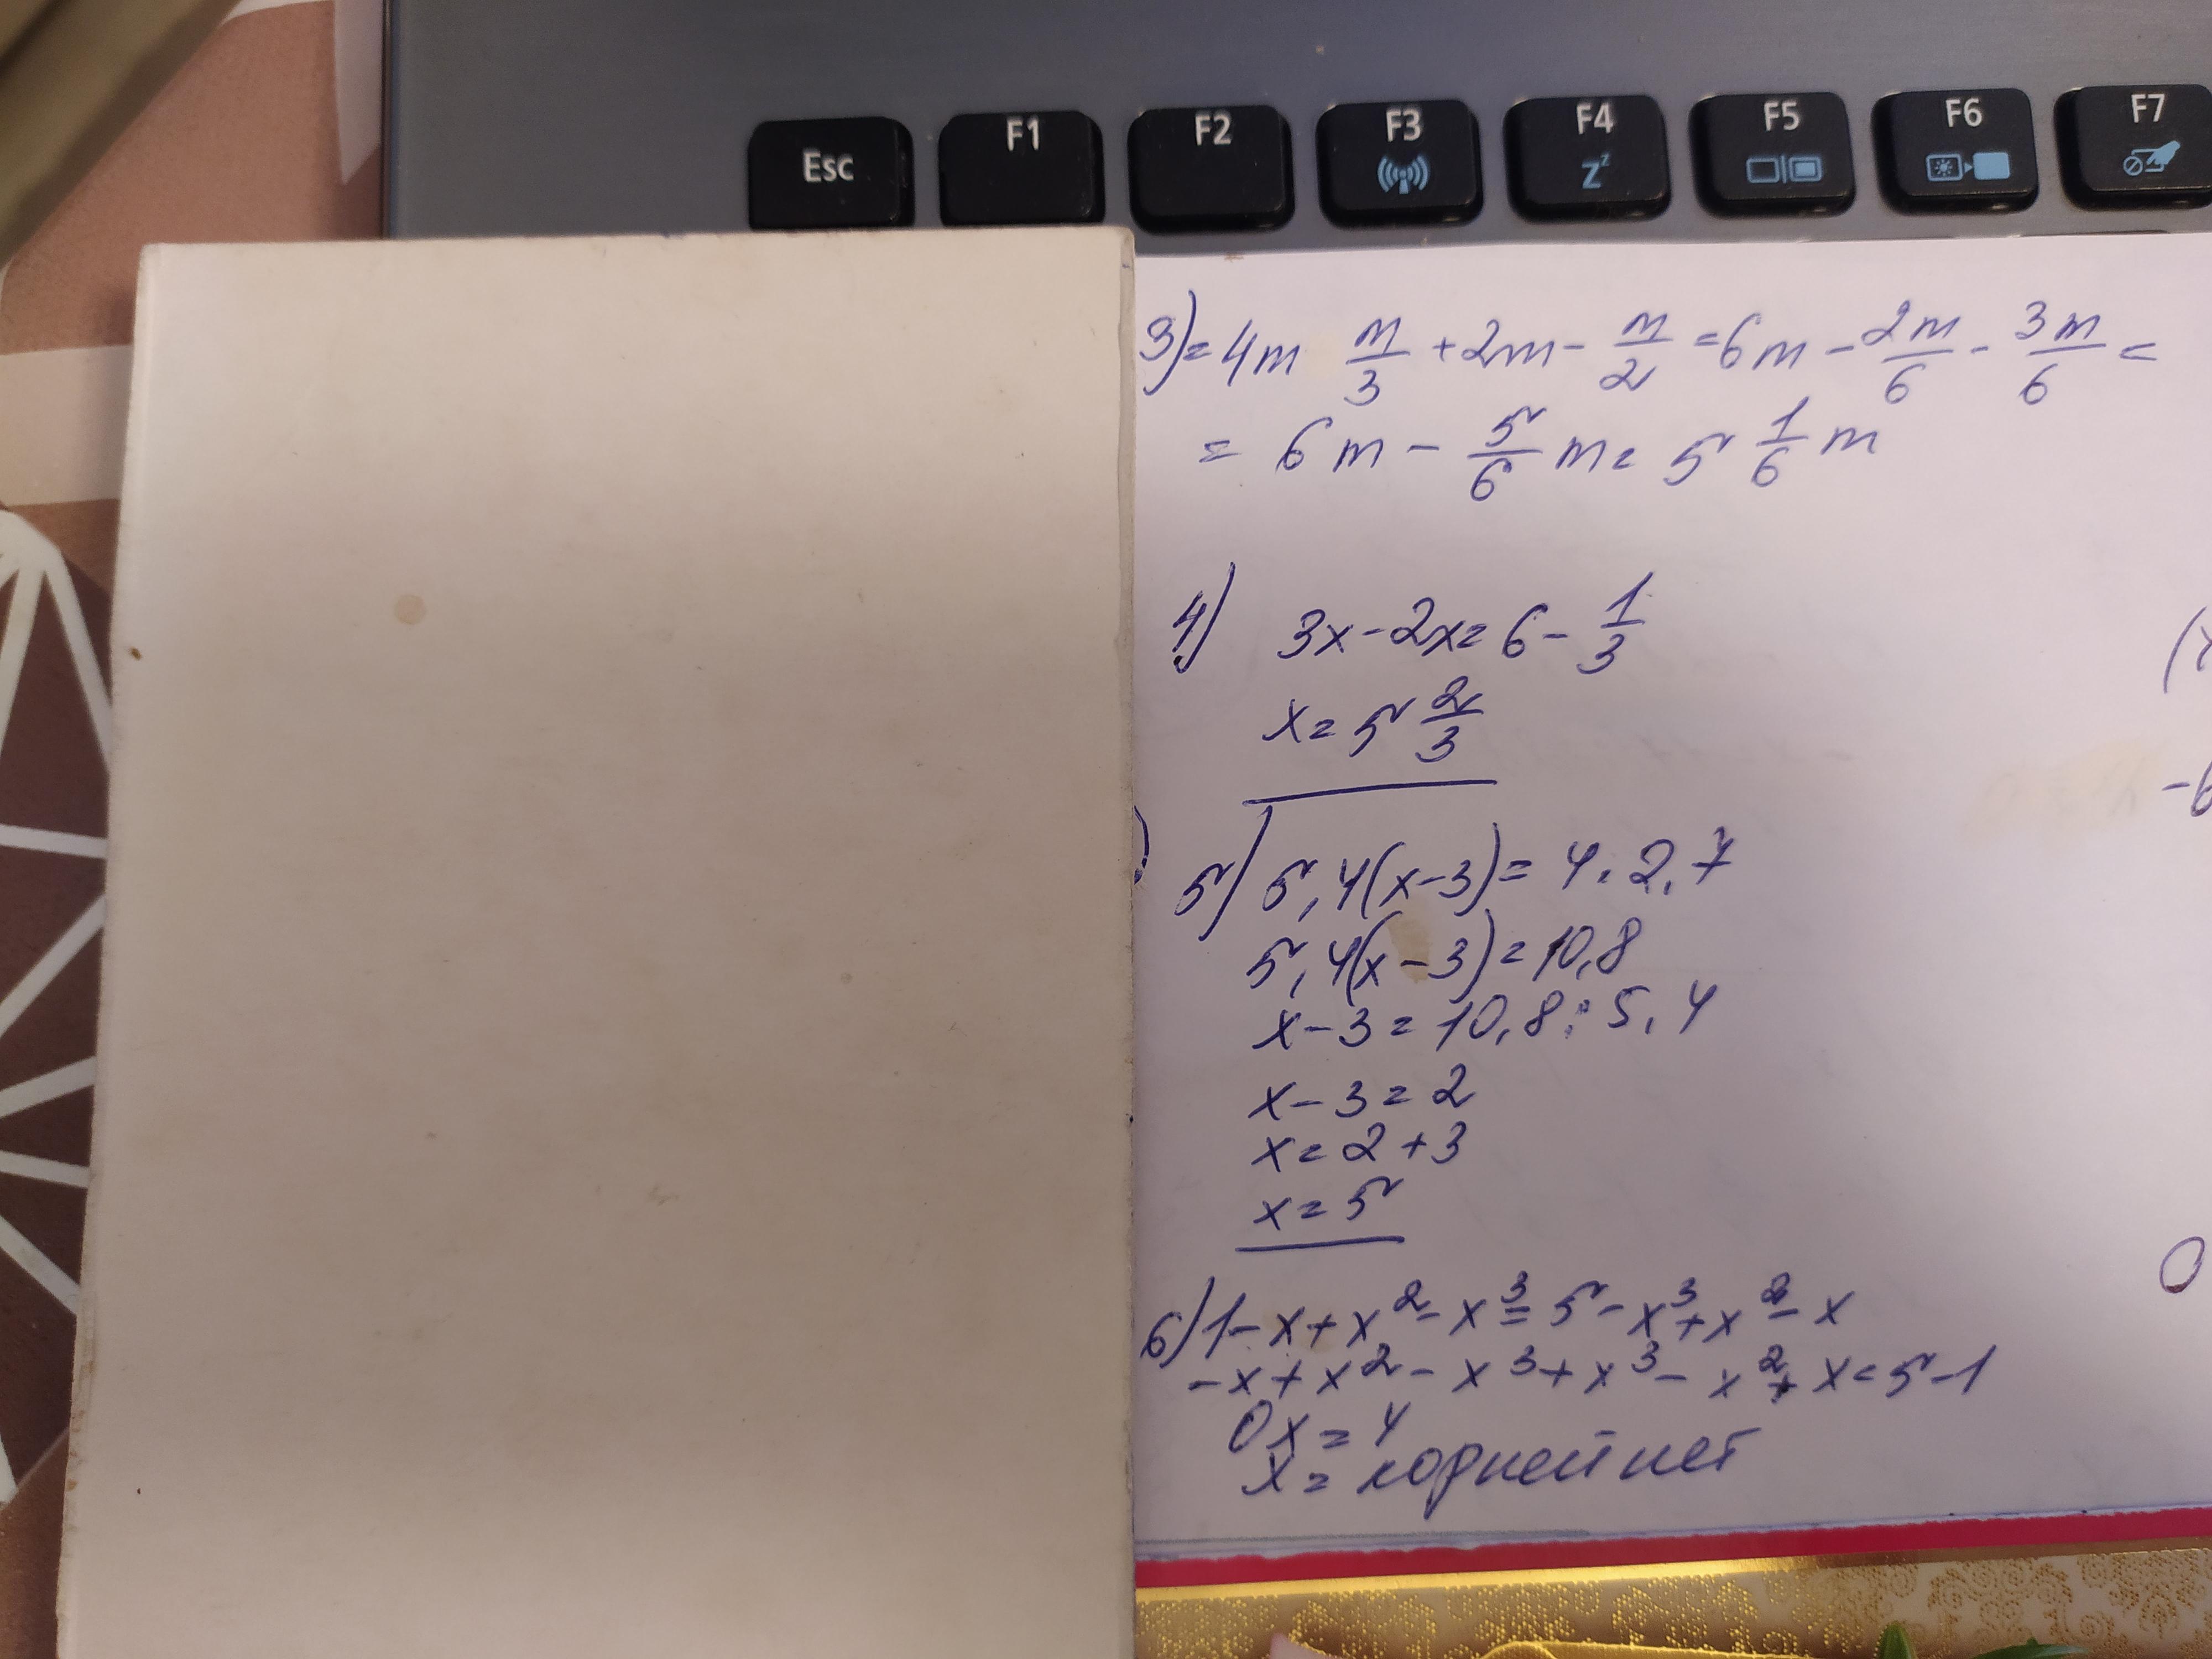 Esc F1 F2 F3 F4 F5 F6 F7
Zz
3) = 4m m/3 + 2m - m/2 = 6m - 2m/6 - 3m/6 =
= 6m - 5/6 m = 5 1/6 m
4) 3x - 2x = 6 - 1/3
x = 5 2/3
5) 5,4(x-3) = 4·2,7
5,4(x-3) = 10,8
x - 3 = 10,8 : 5,4
x - 3 = 2
x = 2 + 3
x = 5
6) 1 - x + x² - x³ = 5 - x³ + x² - x
- x + x² - x³ + x³ - x² + x = 5 - 1
0x = 4
x = корней нет
-6
0